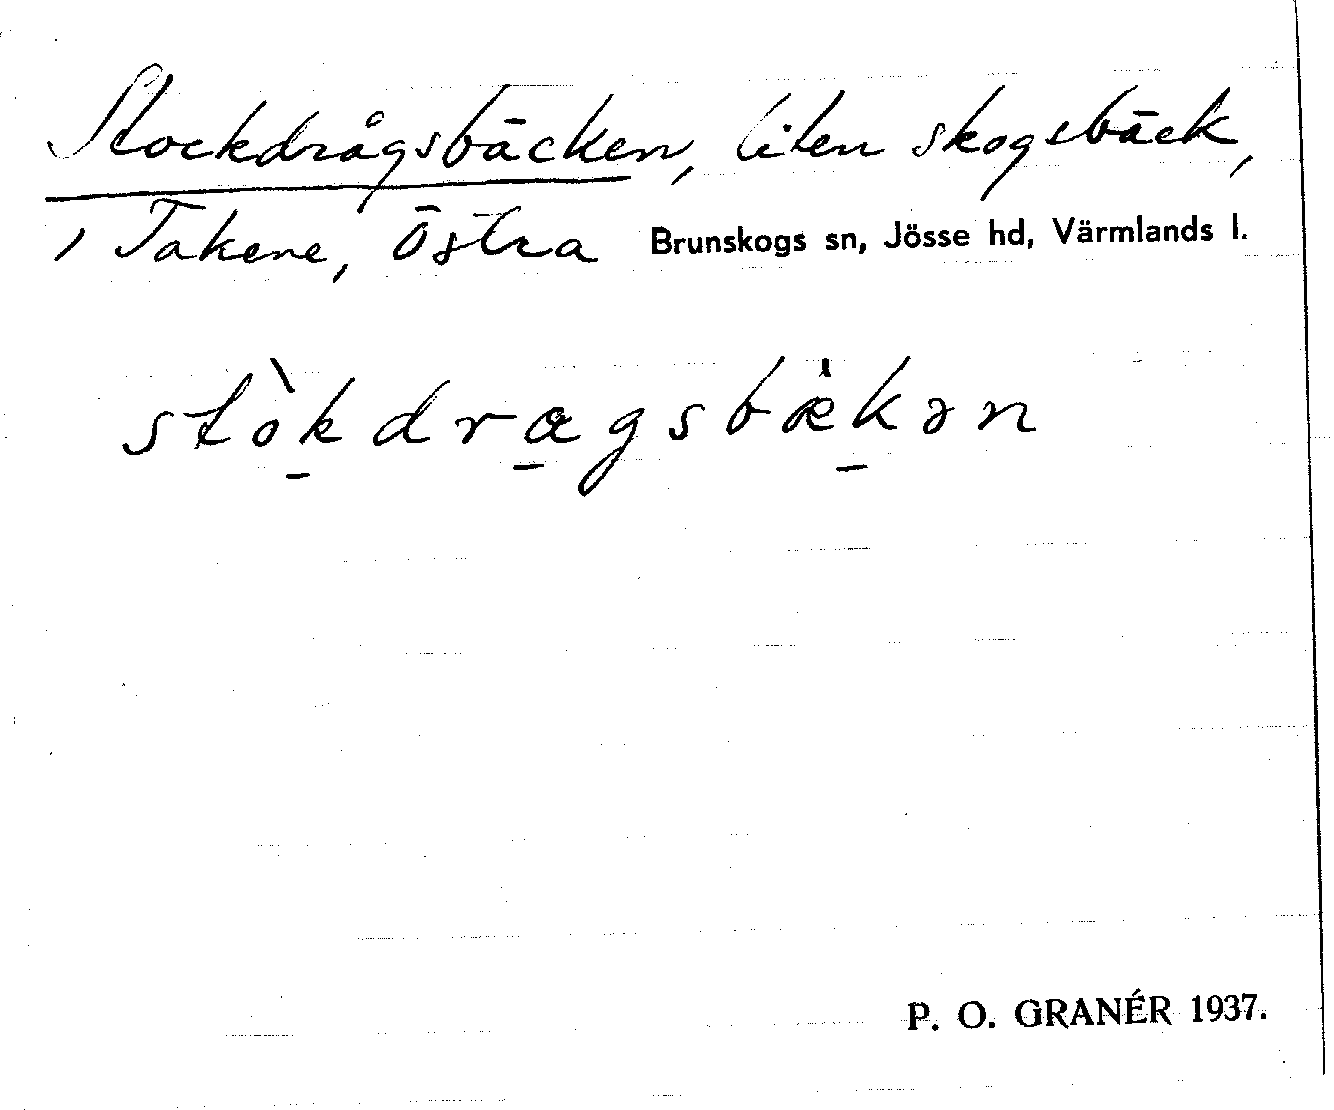 Stockdrågsbäcken, liten skogsbäck,
i Takene, Östra Brunskogs sn, Jösse hd, Värmlands l.
stò̱kdrɑ̱gsbæ̱̀kən
P. O. GRANÉR 1937.